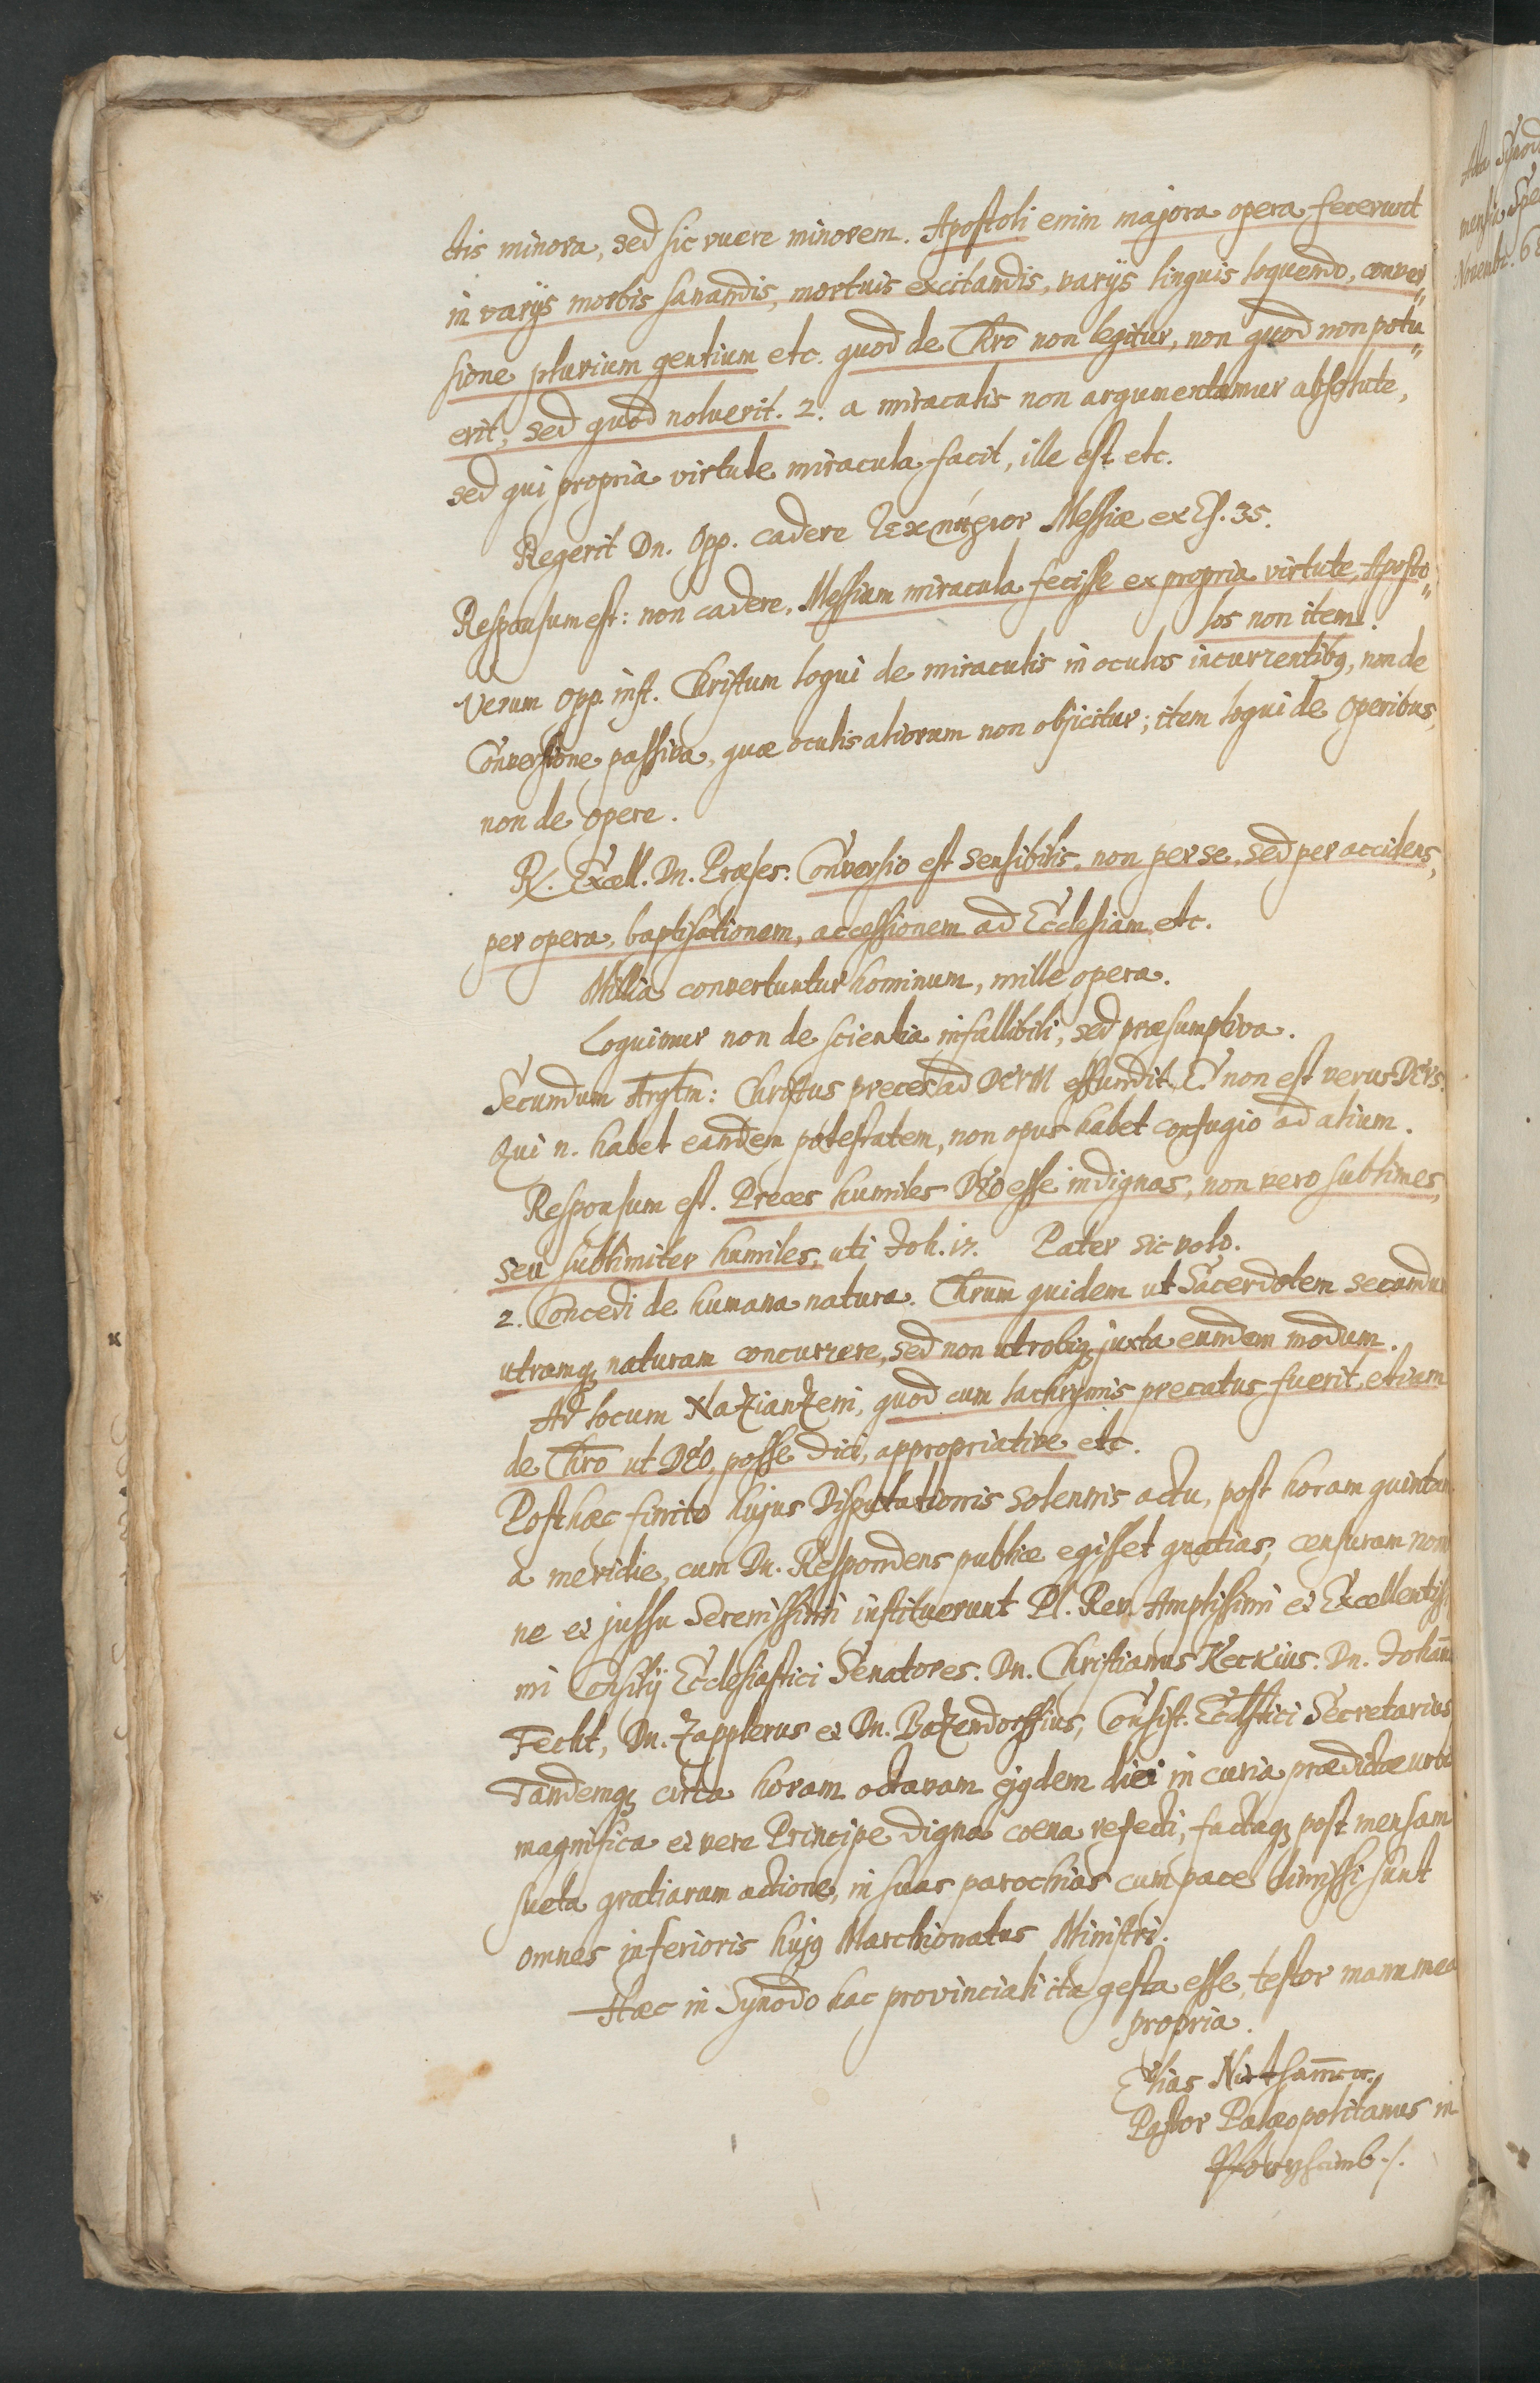 ctis minora, sed sic vuere minorem. Apostoli enim majora opera fecerunt
in varijs morbis sanandis, mortuis excitandis, varijs linguis loquendo, conver„
sione plurium gentium etc. quod de Chro non legitur, non quod non potu„
erit, sed quod noluerit. 2. a miraculis non argumentamur absolute,
sed qui propria virtute miracula facit, ille est etc.
Regerit Dn. Opp. cadere τεκμήριον Messiæ ex Es. 35.
Responsum est: non cadere, Messiam miracula fecisse ex propria virtute, Aposto„
los non item.
Verum Opp. inst. Christum loqui de miraculis in oculos incurrentibq, non de
Conversione passiva, quæ oculis aliorum non objicitur; item loqui de Operibus,
non de opere.
R. Excell. Dn. Præses. Conversio est sensibilis, non per se, sed per accidens,
per opera, baptisationem, accessionem ad Ecclesiam etc.
Millia convertuntur hominum, mille opera.
Loquimur non de scientia infallibili, sed præsumptiva.
Secundum Argtm: Christus preces ad DEUM effundit. E. non est verus DEUS.
Qui n. habet eandem potestatem, non opus habet confugio ad alium.
Responsum est. Preces humiles DEO esse indignas, non vero sublimes,
seu sublimiter humiles, uti Joh. 17. Pater sic volo.
2. Concedi de humana natura. Chrum quidem ut Sacerdotem secundum
utramq naturam concurrere, sed non utrobiq juxta eundem modum.
Ad locum Nazianzeni, quod cum lachrymis precatus fuerit, etiam
de Chro ut DEO, posse dici, appropriative etc.
Post hæc finito hujus Disputationis solennis actu, post horam quintam
a meridie, cum Dn. Respondens publice egisset gratias, censuram nomi
ne et jussu Serenissimi instituerunt Pl. Rev. Amplissimi et Excellentiss
mi Consilij Ecclesiastici Senatores. Dn. Christianus Keckius. Dn. Johann
Fecht, Dn. Zapplerus et Dn. Bazendorffius, Consist. Ecclstici Secretarius
Tandemq circa horam octavam ejqdem diei in curia prædictæ urbis
magnifica et vere Principe digna coena refecti, factaq post mensam
sueta gratiarum actione, in suas parochias cum pace dimissi sunt
omnes inferioris hujq Marchionatus Ministri.
Hæc in Synodo hac provinciali ita gesta esse, testor manu mea
propria.
Elias
Pastor Palæopolitanus in
Acta Synod
mensis
Novembr. 68